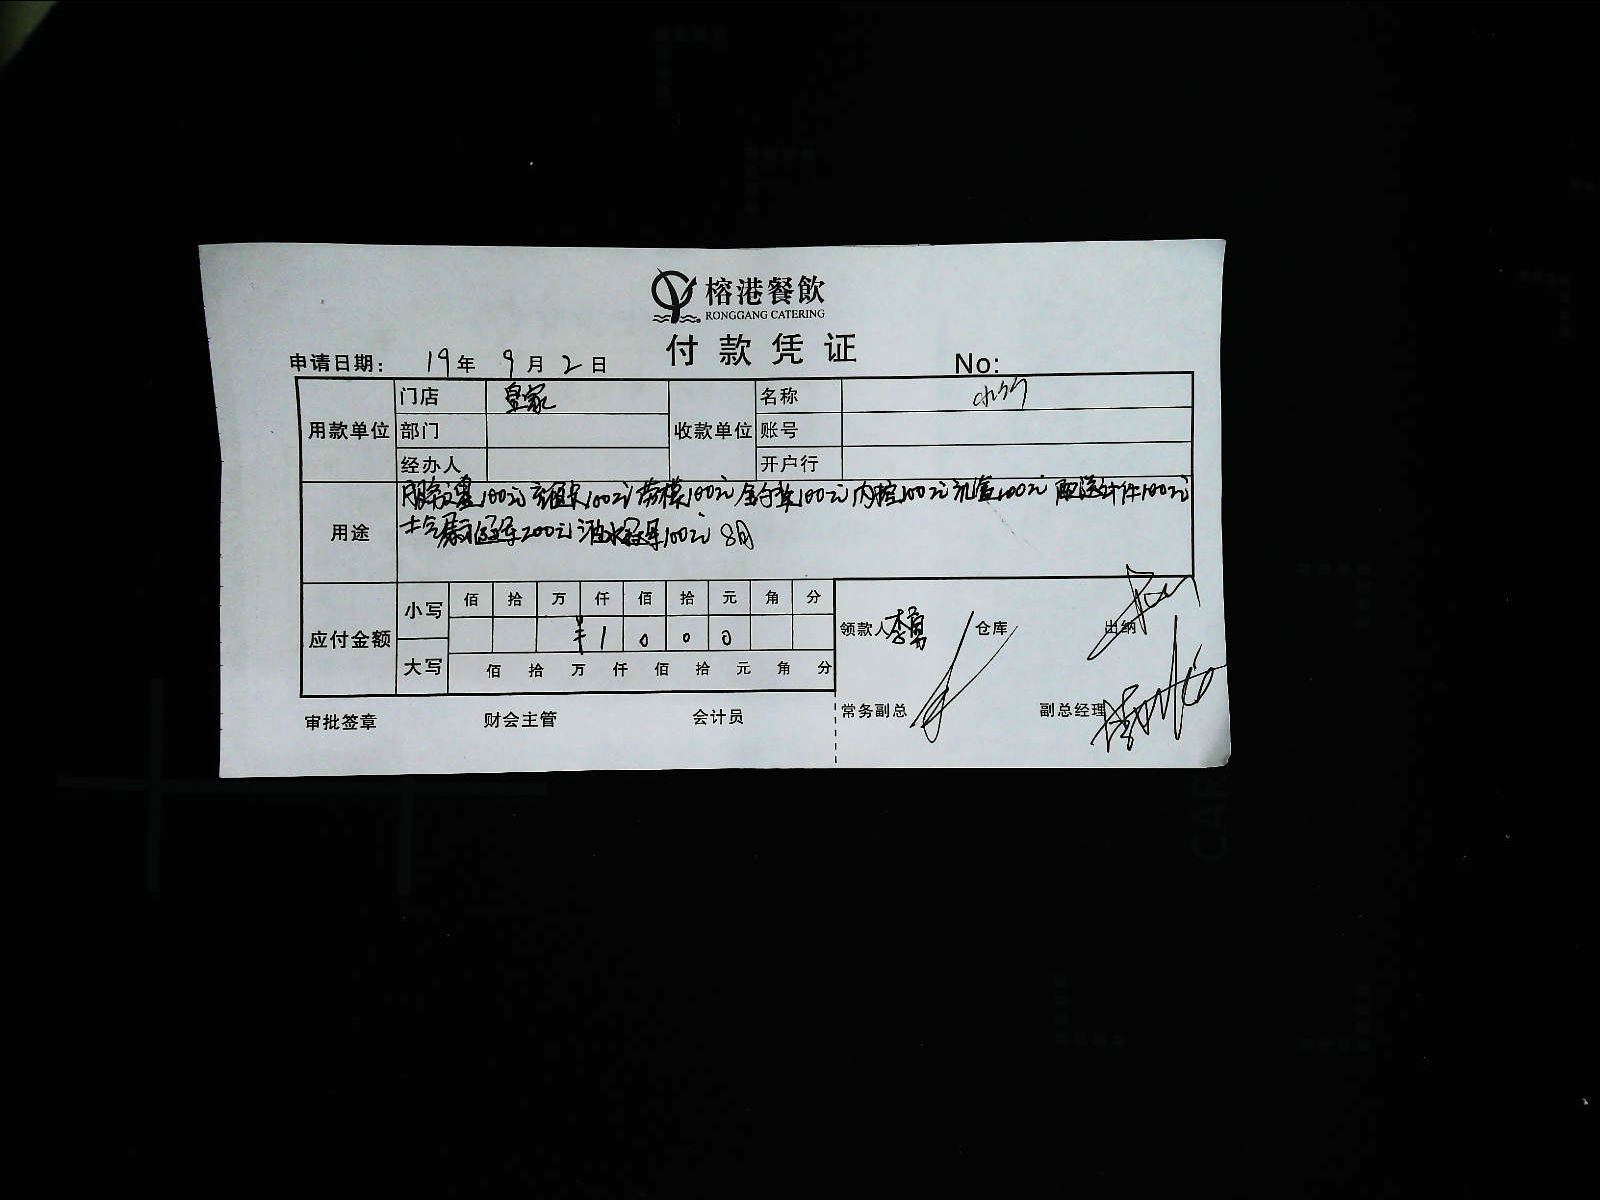 榕港餐飲
RONGGANG CATERING
付款凭证
申请日期: 19年 9月 2日 No:
用款单位 门店 皇家 收款单位 名称
部门 账号
经办人 开户行
用途 100元 充值卡100元 劳模100元 100元 内控100元 100元 配送计件100元
士气展示冠军200元 酒水冠军100元 8月
应付金额 小写 佰 拾 万 仟 佰 拾 元 角 分
¥ 1 0 0 0
大写 佰 拾 万 仟 佰 拾 元 角 分
领款人 李勇 仓库 出纳
常务副总 副总经理
审批签章 财会主管 会计员